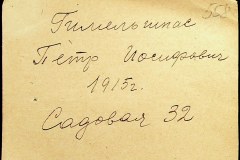 Гимельшпас
Пётр Иосифович
1915г.
Садовая 32